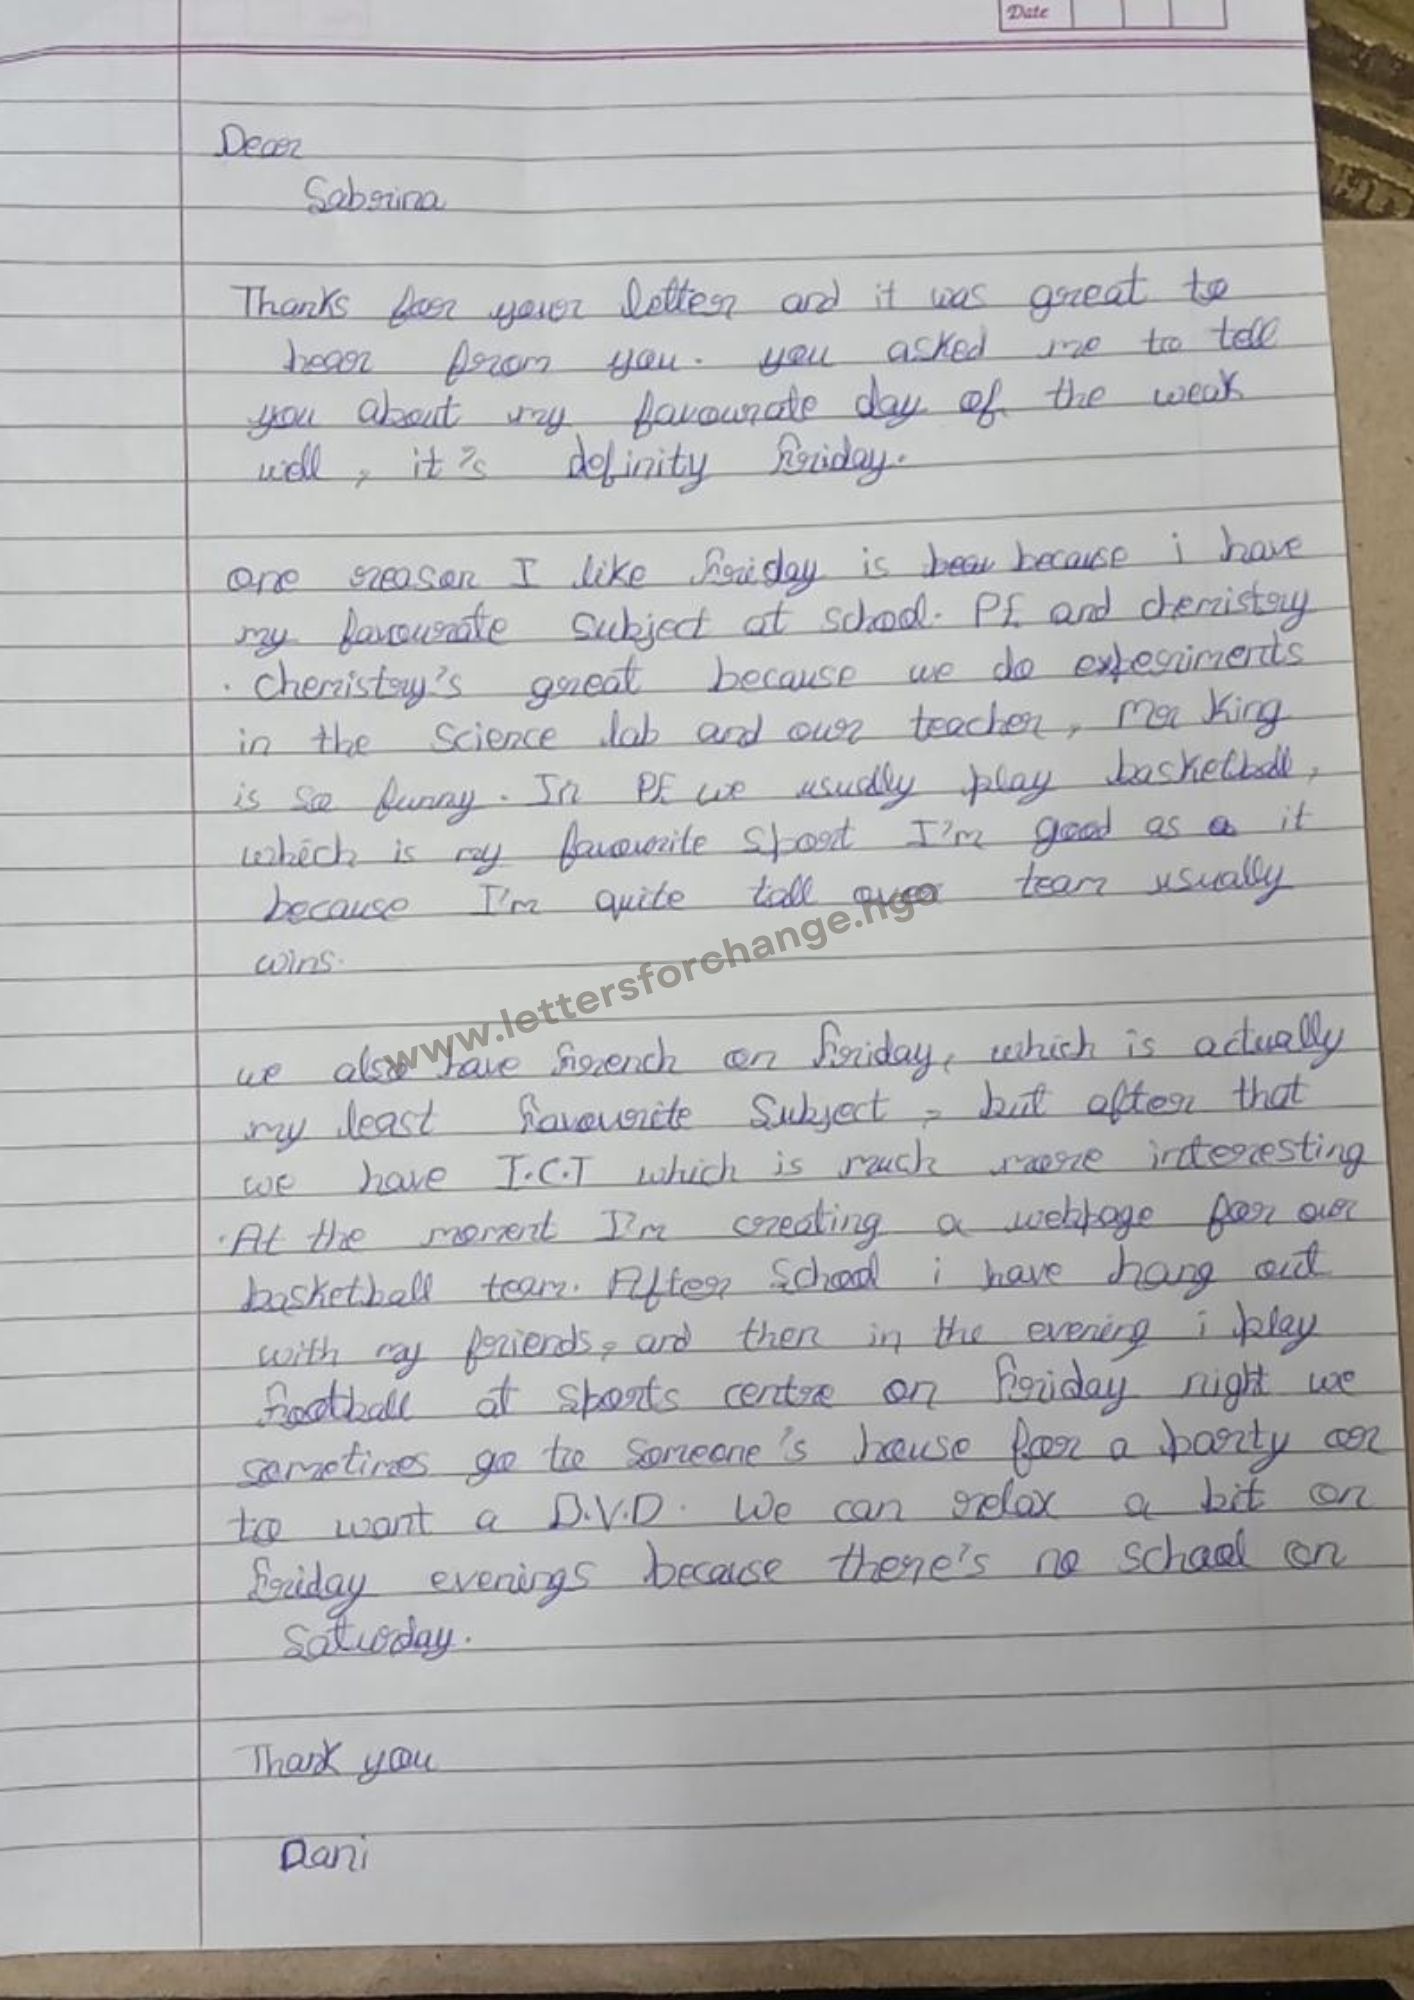 Date
Dear
Sabrina
Thanks for your letter and it was great to
hear from you. you asked me to tell
you about my favourate day of the weak
well, it's definity friday.
one reason I like friday is beau because i have
my favourate subject at school. PE and chemistry
. chemistry's great because we do experiments
in the science lab and our teacher, Mr King
is so funny. In PE we usually play basketball,
which is my favourite sport I'm good as a it
because I'm quite tall over team usually
wins.
we also have french on friday, which is actually
my least favourite subject, but after that
we have I.C.T which is much more interesting
.At the moment I'm creating a webpage for our
basketball team. After school i have hang out
with my friends, and then in the evening i play
football at sports centre on friday night we
sometimes go to someone's house for a party or
to want a D.V.D. We can relax a bit on
friday evenings because there's no school on
Saturday.
Thank you
Dani
www.lettersforchange.ngo